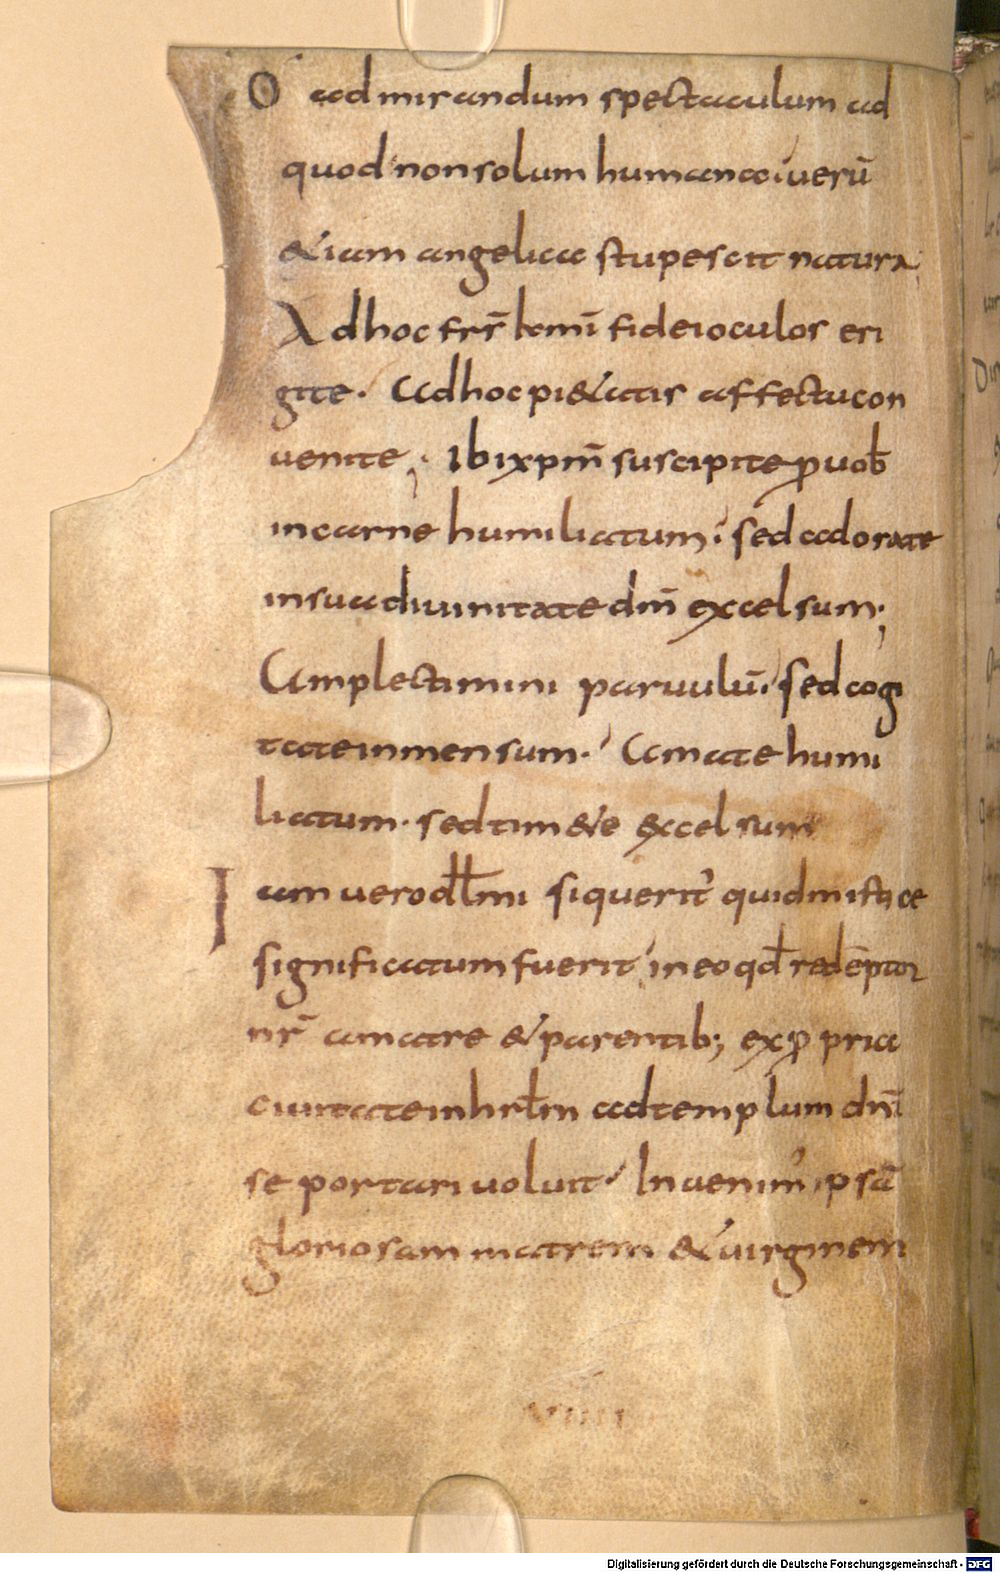 O admirandum spectaculum ad
quod non solum humana uerū
& iam angelica stupescit natura
Ad hoc frs̄ kmī fidei oculos eri
gite. Ad hoc pi&atis affectu con
uenite; Ibi xpm̄ suscipite ꝓ uob̄
in carne humiliatum; sed adorate
in sua diuinitate dm̄ excelsum;
Amplectimini paruulū; sed cogi
tate inmensum. Amate humi
liatum. sed tim&e excelsum
Iam uero dl̄mi si querit' quid mistice
significatum fuerit in eo qđ redēptor
nr̄ a matre & parentib; ex ꝓpria
ciuitate in hrl̄m ad templum dn̄i
se portari uoluit. Inuenim' ipsā
gloriosam matrem & uirginem
VIIII
Digitalisierung gefördert durch die Deutsche Forschungsgemeinschaft - DFG